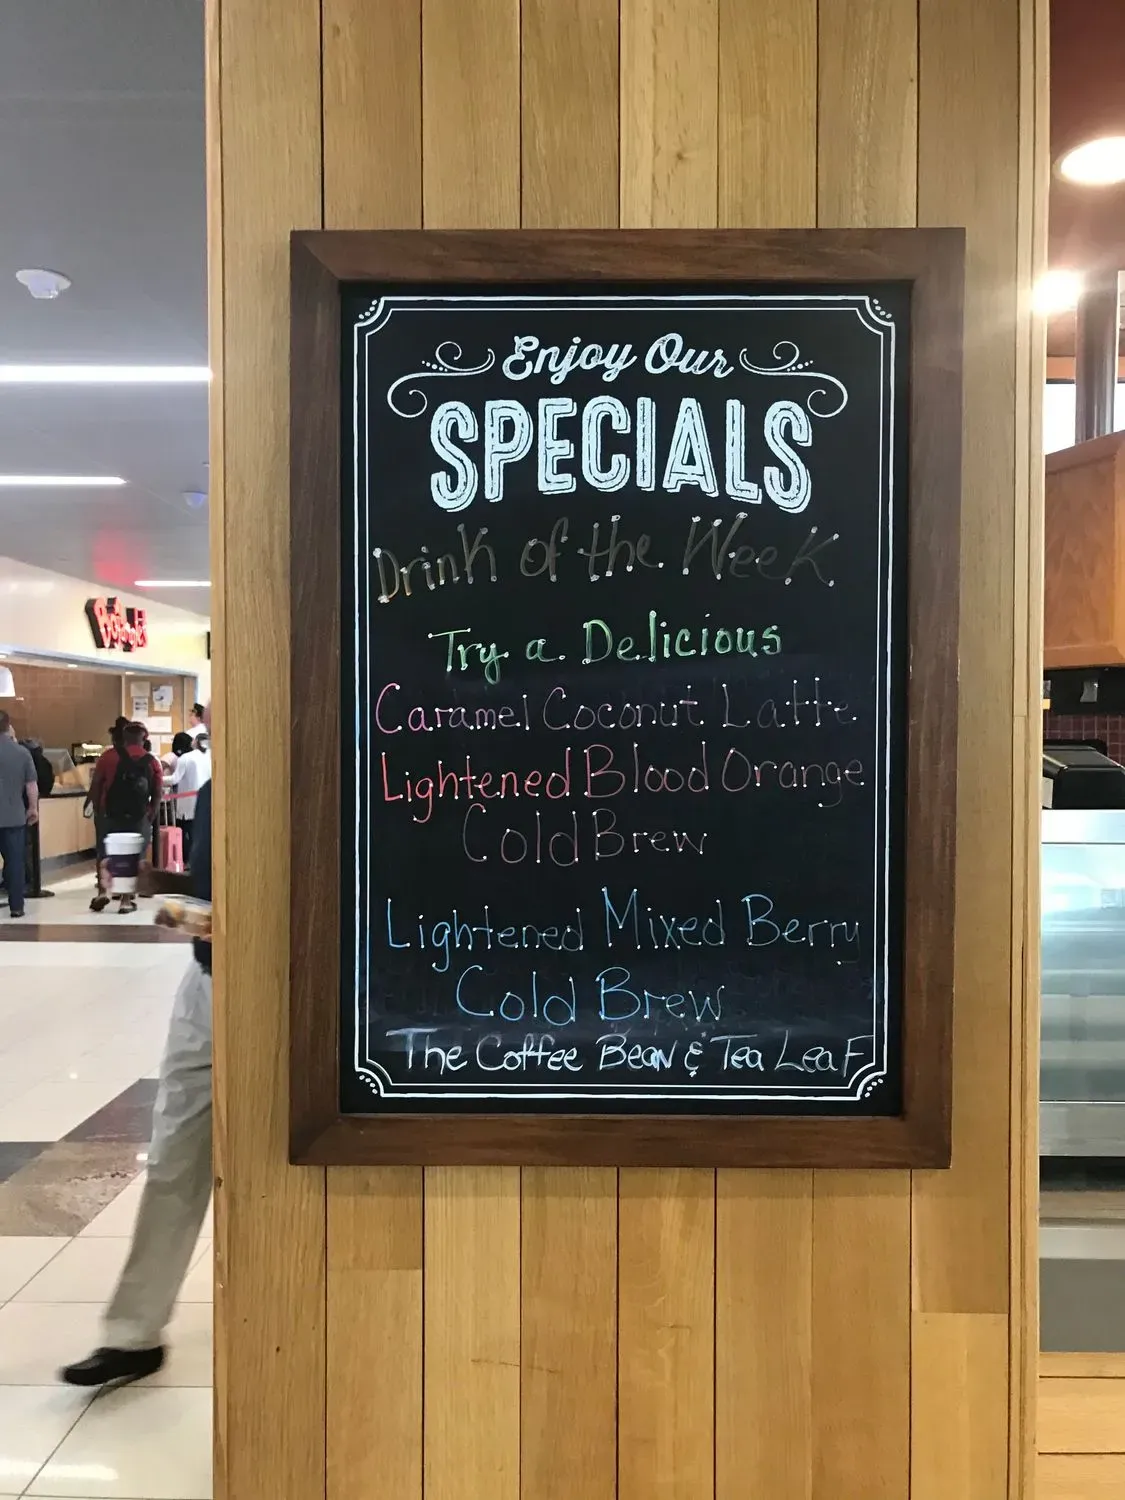 Enjoy Our
SPECIALS
Drink of the Week
Try a Delicious
Caramel Coconut Latte
Lightened Blood Orange
Cold Brew
Lightened Mixed Berry
Cold Brew
The Coffee Bean & Tea Leaf